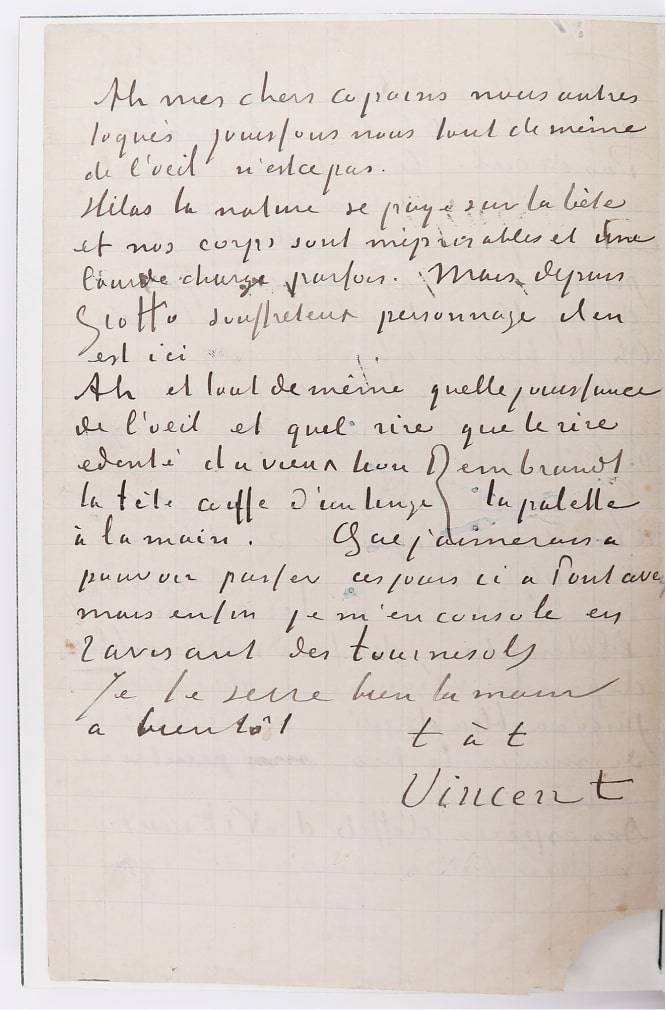 Ah mes chers copains nous autres
toqués jouissons nous tout de meme
de l'oeil n'est ce pas.
Hélas la nature se paye sur la bête
et nos corps sont méprisables et une
lourde charge parfois. Mais depuis
Giotto souffreteux personnage il en
est ici
Ah et tout de même quelle jouissance
de l'oeil et quel rire que le rire
edenté du vieux lion Rembrandt
la tête coiffé d'un linge la palette
à la main. Que j'aimerais a
pouvoir passer ces jours ci a Pont aven
mais enfin je m'en console en
ravisant des tournesols
Je te serre bien la main
a bientôt t à t
Vincent